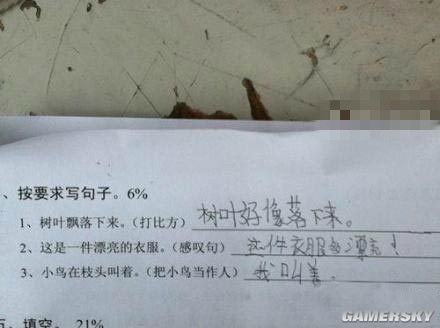 、按要求写句子。6%
1、树叶飘落下来。（打比方）树叶好像落下来。
2、这是一件漂亮的衣服。（感叹句）这件衣服多漂亮！
3、小鸟在枝头叫着。（把小鸟当作人）我叫着.
、填空。 21%
GAMERSKY